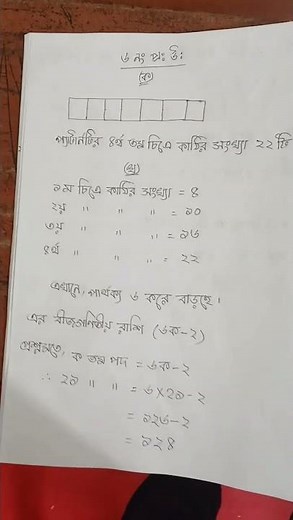 ৬ নং প্রঃ উঃ
(ক)
প্যাটার্নটির ৪র্থ তম চিত্রে কাঠির সংখ্যা ২২ টি
(খ)
১ম চিত্রে কাঠির সংখ্যা = ৪
২য় " " " = ১০
৩য় " " " = ১৬
৪র্থ " " " = ২২
এখানে, পার্থক্য ৬ করে বাড়ছে।
এর বীজগাণিতীয় রাশি (৬ক-২)
প্রশ্নমতে, ক তম পদ = ৬ক-২
∴ ২১ " " = ৬×২১-২
= ১২৬-২
= ১২৪